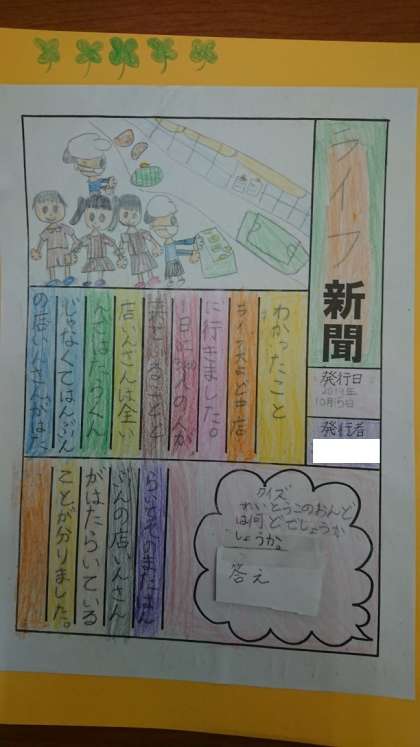 ライフ
新聞
発行日
2019年
発行者
わかったこと
ライフ大よど中店
に行きました。
一日に人の人が
ことと
店いんさんは全い
んではたらくん
じゃなくてはんぶん
の店いんさんがはた
らいてそのまたはん
ぶんの店いんさん
がはたらいている
ことが分りました。
クイズ
れいとうこのおんど
は何どでしょうか
しょうか。
答え